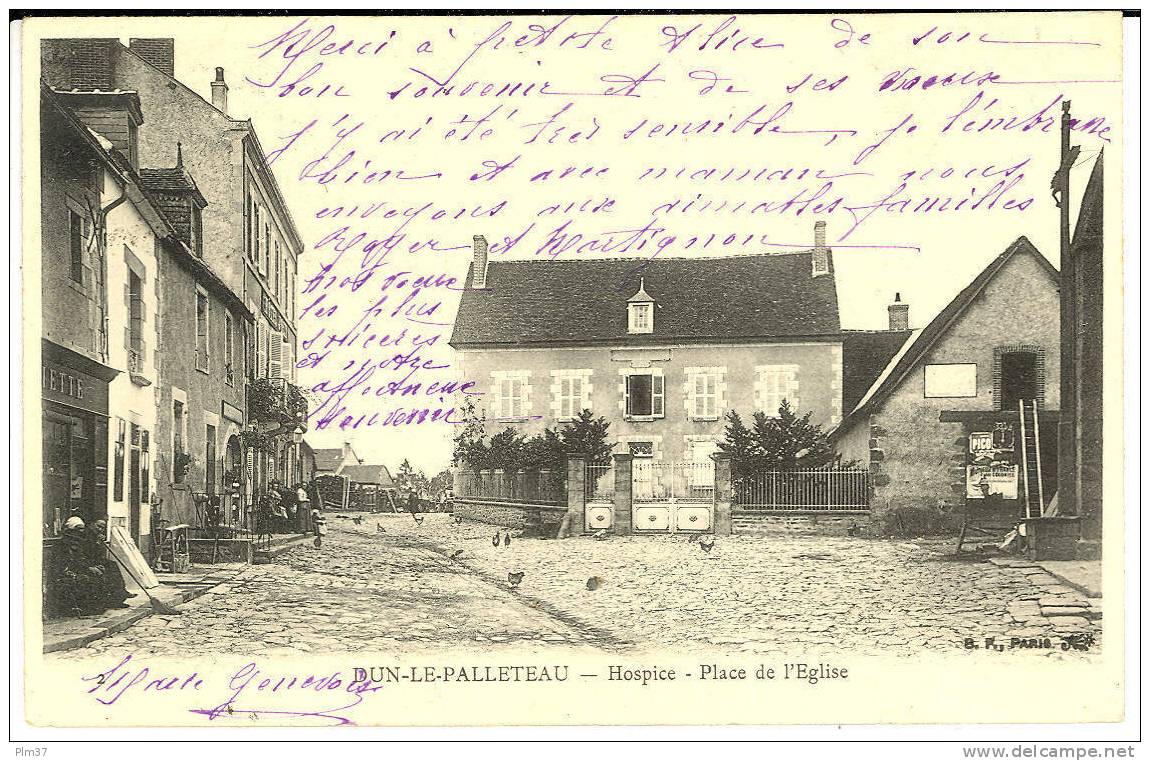 Merci à petite Alice de son
bon souvenir et de ses vœux
j'y ai été très sensible, je l'embrasse
bien et avec maman nous
envoyons aux aimables familles
et Martignon
nos vœux
les plus
sincères
et notre
affectueux
souvenir
ETTE
PICO
B. F., PARIS
2 DUN-LE-PALLETEAU — Hospice - Place de l'Eglise
Marie Genevois
Plm37
www.delcampe.net